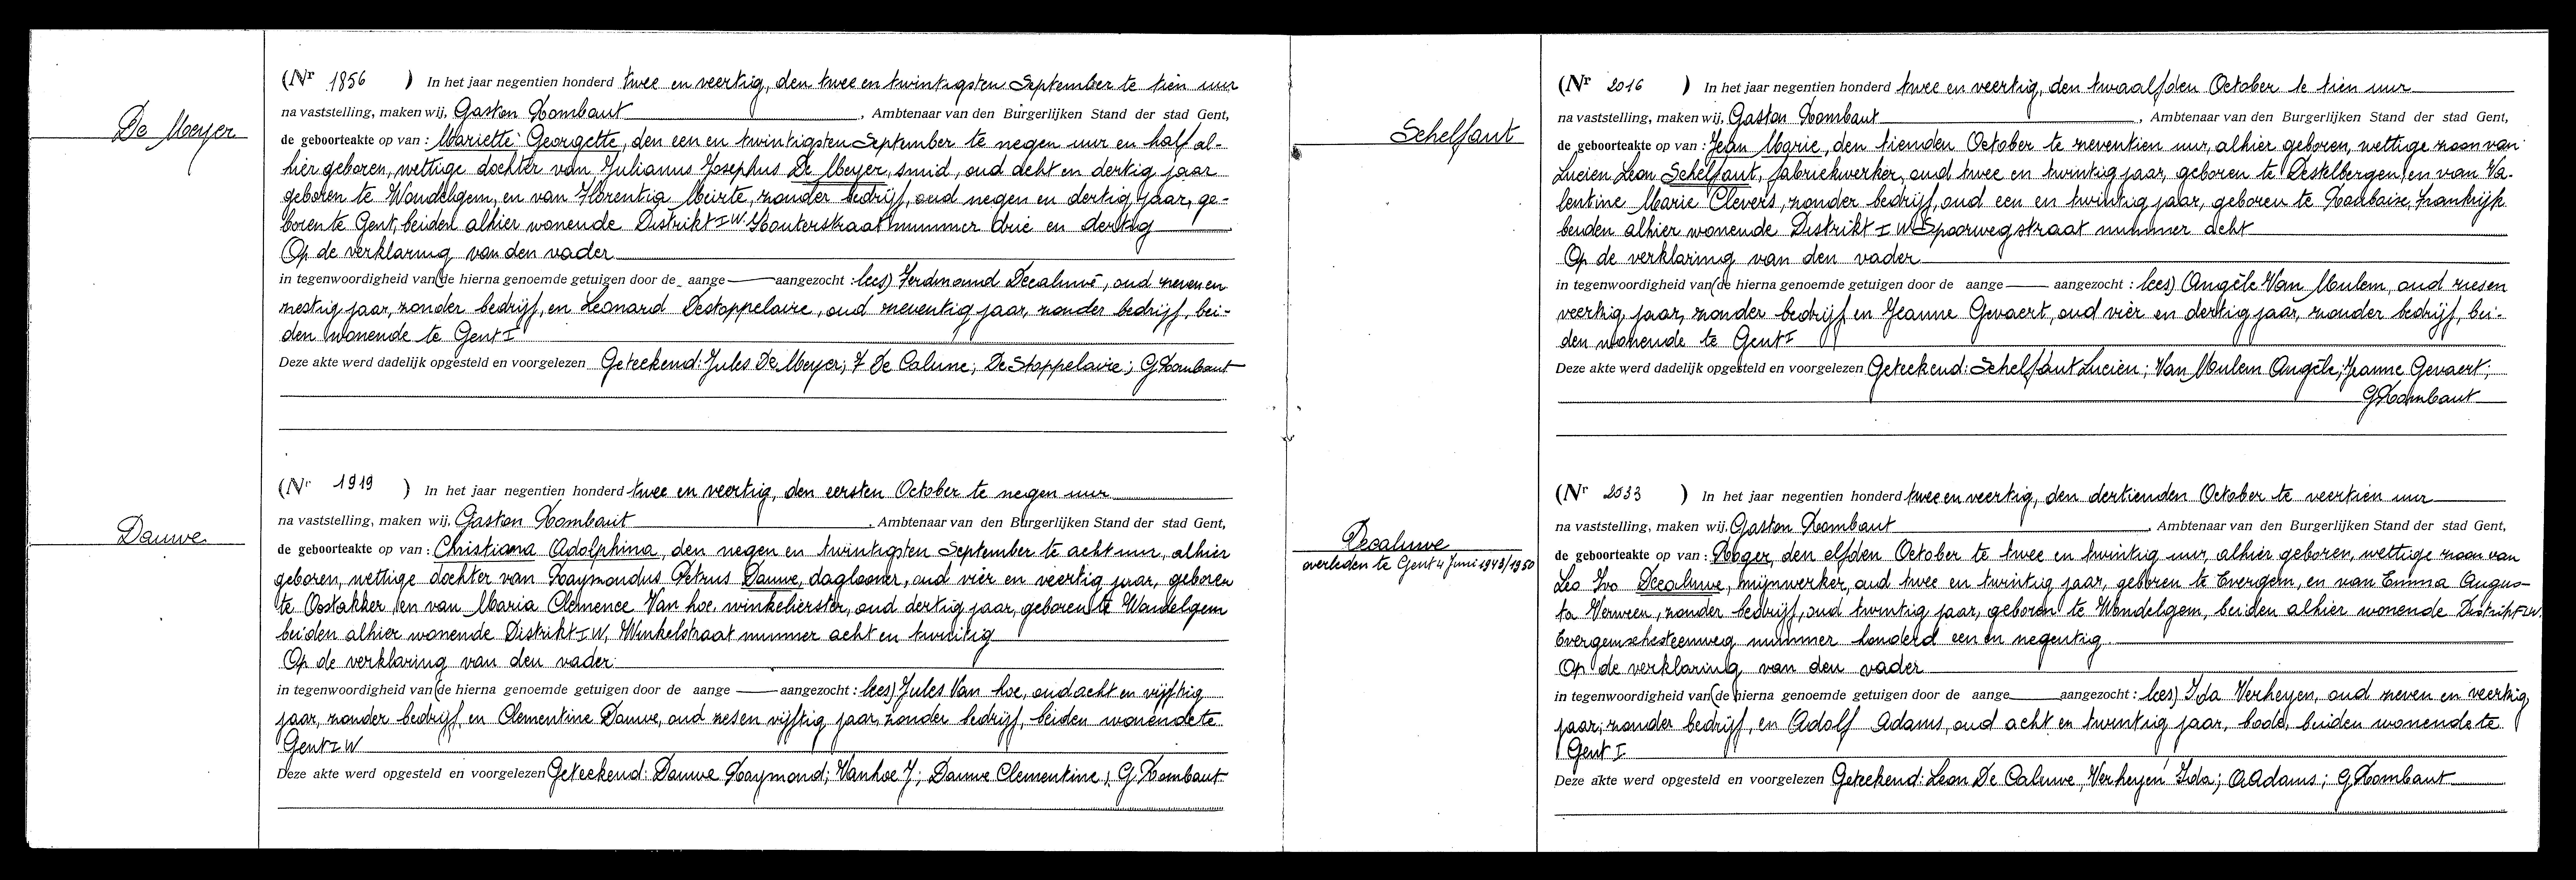 De Meyer
(Nr 1856 ) In het jaar negentien honderd twee en veertig, den twee en twintigsten September te tien uur
na vaststelling, maken wij, Gaston Rombaut, Ambtenaar van den Burgerlijken Stand der stad Gent,
de geboorteakte op van : Mariette Georgette, den een en twintigsten September te negen uur en half al-
hier geboren, wettige dochter van Julianus Josephus De Meyer, smid, oud acht en dertig jaar
geboren te Wondelgem, en van Florentia Meirte, zonder bedrijf, oud negen en dertig jaar, ge-
boren te Gent, beiden alhier wonende Distrikt I W. Kouterstraat nummer drie en dertig
Op de verklaring van den vader
in tegenwoordigheid van (de hierna genoemde getuigen door de aange aangezocht : lees) Ferdinand Decaluwé, oud zeven en
zestig jaar, zonder bedrijf, en Leonard Destoppelaire, oud zeventig jaar, zonder bedrijf, bei-
den wonende te Gent I
Deze akte werd dadelijk opgesteld en voorgelezen Geteekend: Jules De Meyer; F De Caluwe; De Stoppelaire; G Rombaut
Dauwe
(Nr 1919 ) In het jaar negentien honderd twee en veertig, den eersten October te negen uur
na vaststelling, maken wij, Gaston Rombaut, Ambtenaar van den Burgerlijken Stand der stad Gent,
de geboorteakte op van : Christiana Adolphina, den negen en twintigsten September te acht uur, alhier
geboren, wettige dochter van Raymondus Petrus Dauwe, daglooner, oud vier en veertig jaar, geboren
te Oostakker, en van Maria Clemence Van hoe, winkelierster, oud dertig jaar, geboren te Wondelgem
beiden alhier wonende Distrikt I W, Winkelstraat nummer acht en twintig
Op de verklaring van den vader
in tegenwoordigheid van (de hierna genoemde getuigen door de aange aangezocht : lees) Jules Van hoe, oud acht en vijftig
jaar, zonder bedrijf, en Clementine Dauwe, oud zes en vijftig jaar, zonder bedrijf, beiden wonende te
Gent I W
Deze akte werd opgesteld en voorgelezen Geteekend: Dauwe Raymond; Vanhoe J; Dauwe Clementine; G. Rombaut
Schelfaut
(Nr 2016 ) In het jaar negentien honderd twee en veertig, den twaalfden October te tien uur
na vaststelling, maken wij, Gaston Rombaut, Ambtenaar van den Burgerlijken Stand der stad Gent,
de geboorteakte op van : Jean Marie, den tienden October te zeventien uur, alhier geboren, wettige zoon van
Lucien Leon Schelfaut, fabriekwerker, oud twee en twintig jaar, geboren te Destelbergen, en van Va-
lentine Marie Clevers, zonder bedrijf, oud een en twintig jaar, geboren te Roubaix, Frankrijk
beiden alhier wonende Distrikt I W Spoorwegstraat nummer acht
Op de verklaring van den vader
in tegenwoordigheid van (de hierna genoemde getuigen door de aange aangezocht : lees) Angèle Van Mulem, oud zesen
veertig jaar, zonder bedrijf en Jeanne Gevaert, oud vier en dertig jaar, zonder bedrijf, bei-
den wonende te Gent I
Deze akte werd dadelijk opgesteld en voorgelezen Geteekend: Schelfaut Lucien; Van Mulem Angèle; Jeanne Gevaert;
G Rombaut
Decaluwe
overleden te Gent 4 Juni 1948/1950
(Nr 2033 ) In het jaar negentien honderd twee en veertig, den dertienden October te veertien uur
na vaststelling, maken wij, Gaston Rombaut, Ambtenaar van den Burgerlijken Stand der stad Gent,
de geboorteakte op van : Roger, den elfden October te twee en twintig uur, alhier geboren, wettige zoon van
Leo Ivo Decaluwe, mijnwerker, oud twee en twintig jaar, geboren te Evergem, en van Emma Augus-
ta Verween, zonder bedrijf, oud twintig jaar, geboren te Wondelgem, beiden alhier wonende Distrikt I W.
Evergemschesteenweg nummer honderd een en negentig
Op de verklaring van den vader
in tegenwoordigheid van (de hierna genoemde getuigen door de aange aangezocht : lees) Ida Verheyen, oud zeven en veertig
jaar, zonder bedrijf, en Adolf Adams, oud acht en twintig jaar, bode, beiden wonende te
Gent I
Deze akte werd opgesteld en voorgelezen Geteekend: Leon De Caluwe, Verheyen Ida; A Adams; G Rombaut